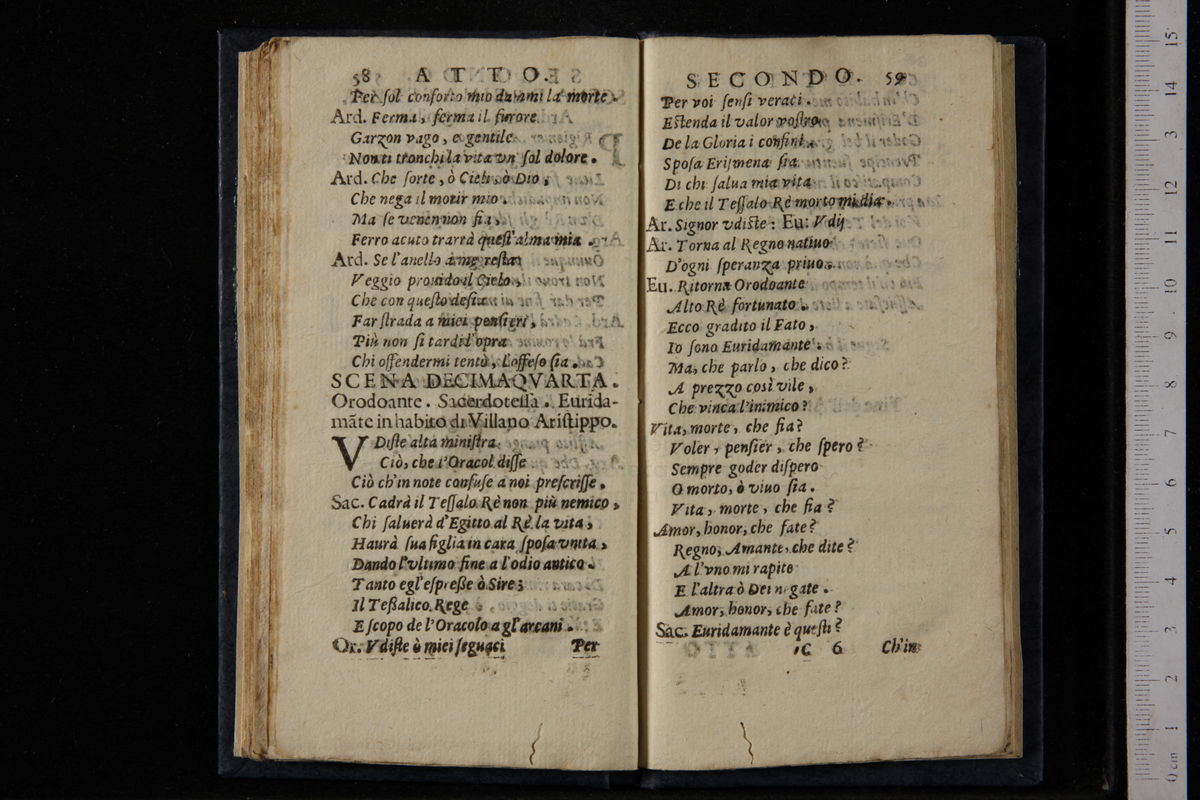 58 ATTO.
Per sol conforto mio dammi la morte.
Ard. Ferma, ferma il furore
Garzon vago, e gentile
Non ti tronchi la vita vn sol dolore.
Ard. Che sorte, ò Cieli, ò Dio,
Che nega il morir mio.
Ma se venen non sia,
Ferro acuto trarrà quest'alma mia.
Ard. Se l'anello à me resta
Veggio prouido il Cielo,
Che con questo desia
Far strada a miei pensieri,
Più non si tardi l'opra
Chi offendermi tentò, l'offeso sia.
SCENA DECIMAQVARTA.
Orodoante. Sacerdotessa. Eurida-
māte in habito di Villano Aristippo.
VDiste alta ministra
Ciò, che l'Oracol disse
Ciò ch'in note confuse a noi prescrisse.
Sac. Cadrà il Tessalo Rè non più nemico,
Chi saluerà d'Egitto al Rè la vita,
Haurà sua figlia in cara sposa vnita,
Dando l'vltimo fine a l'odio antico.
Tanto egl'espresse ò Sire;
Il Tessalico Rege
E scopo de l'Oracolo agl'arcani.
Or. Vdiste ò miei seguaci
Per
SECONDO. 59
Per voi sensi veraci.
Estenda il valor vostro
De la Gloria i confini.
Sposa Erismena sia
Di chi salua mia vita
E che il Tessalo Rè morto mi dia.
Ar. Signor vdiste: Eu: Vdij
Ar. Torna al Regno natiuo
D'ogni speranza priuo.
Eu. Ritorna Orodoante
Alto Rè fortunato.
Ecco gradito il Fato,
Io sono Euridamante.
Ma, che parlo, che dico?
A prezzo così vile,
Che vinca l'inimico?
Vita, morte, che fia?
Voler, pensier, che spero?
Sempre goder dispero
O morto, ò viuo sia.
Vita, morte, che fia?
Amor, honor, che fate?
Regno, Amante, che dite?
A l'vno mi rapite
E l'altra ò Dei negate.
Amor, honor, che fate?
Sac. Euridamante è questi?
C 6 Ch'in